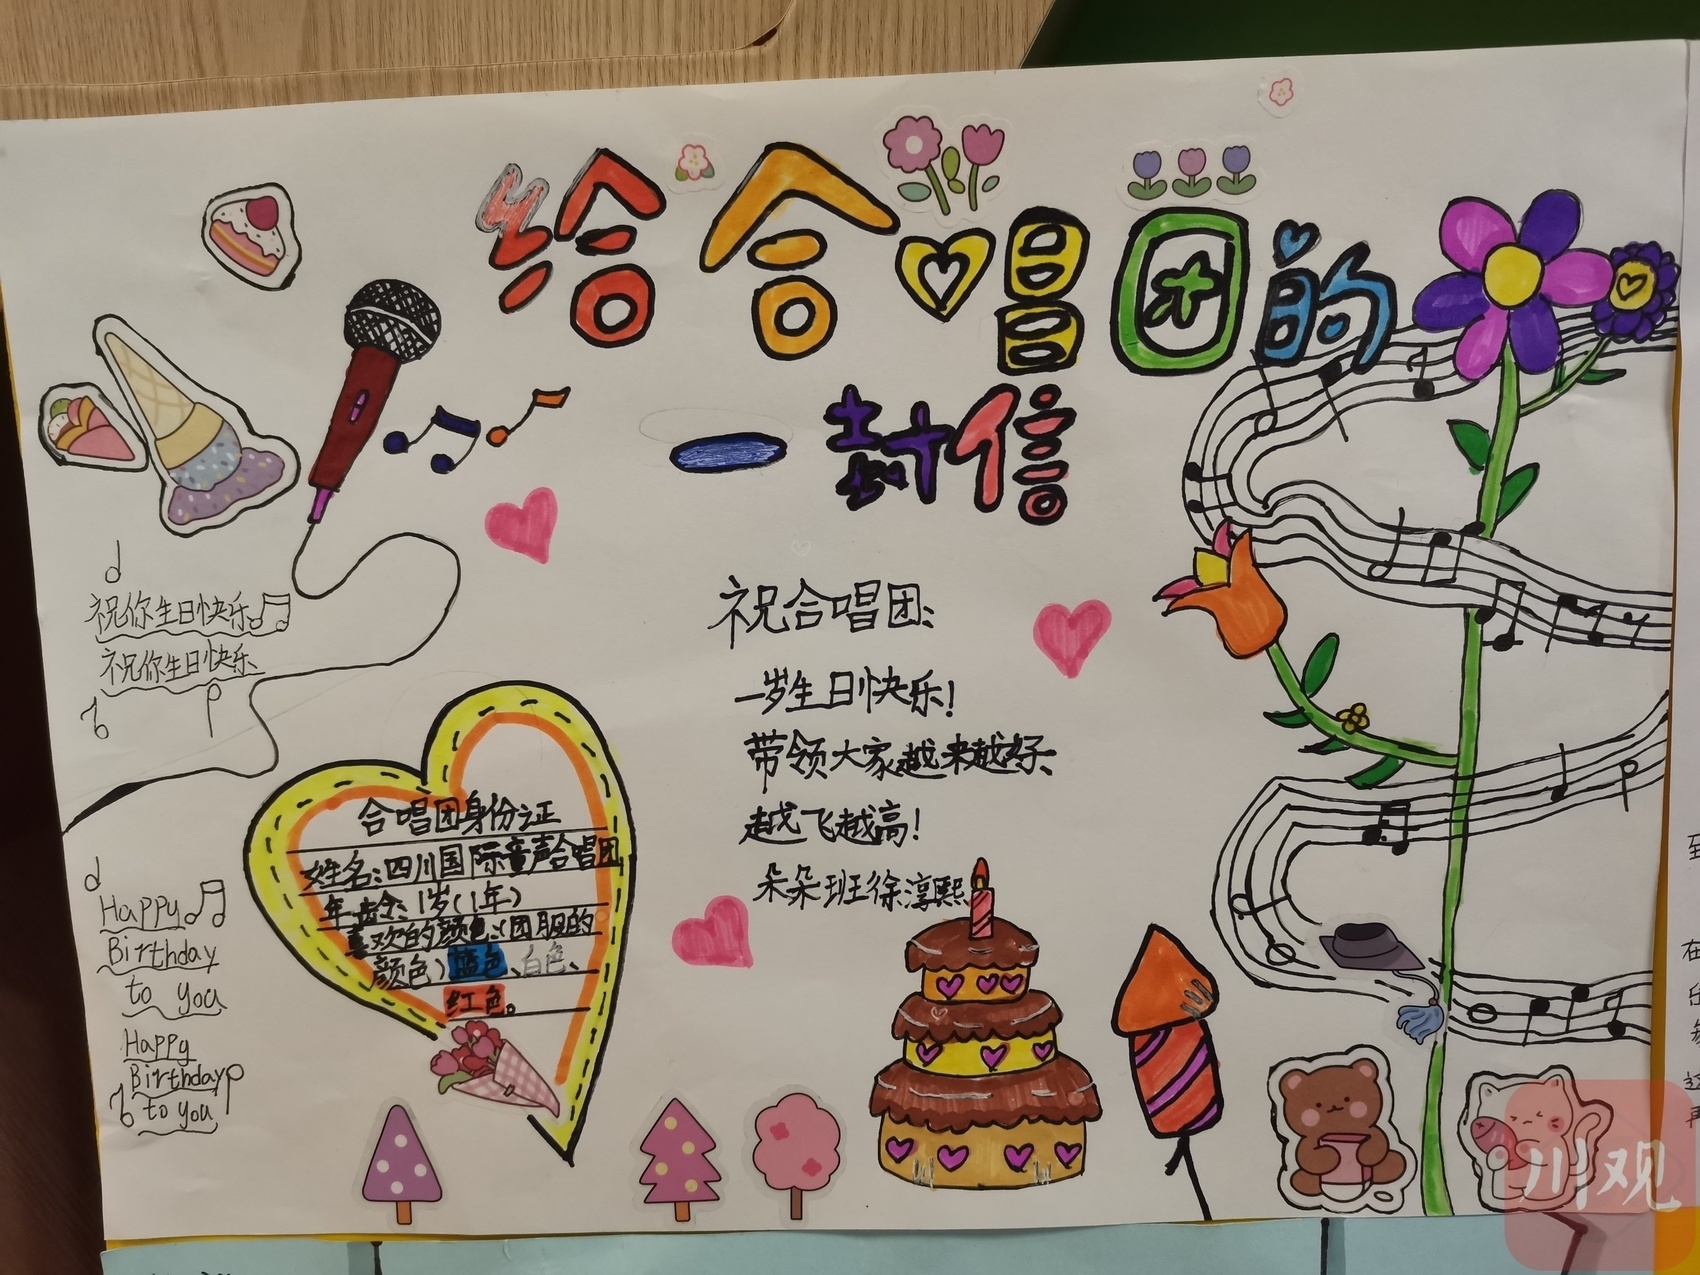 给合唱团的
一封信
祝你生日快乐
祝你生日快乐
Happy
Birthday
to you
Happy
Birthday
to you
合唱团身份证
姓名:四川国际童声合唱团
年龄:1岁(1年)
喜欢的颜色:(团服的
颜色)蓝色、白色、
红色。
祝合唱团:
一岁生日快乐!
带领大家越来越好、
越飞越高!
朵朵班徐淳熙
川观